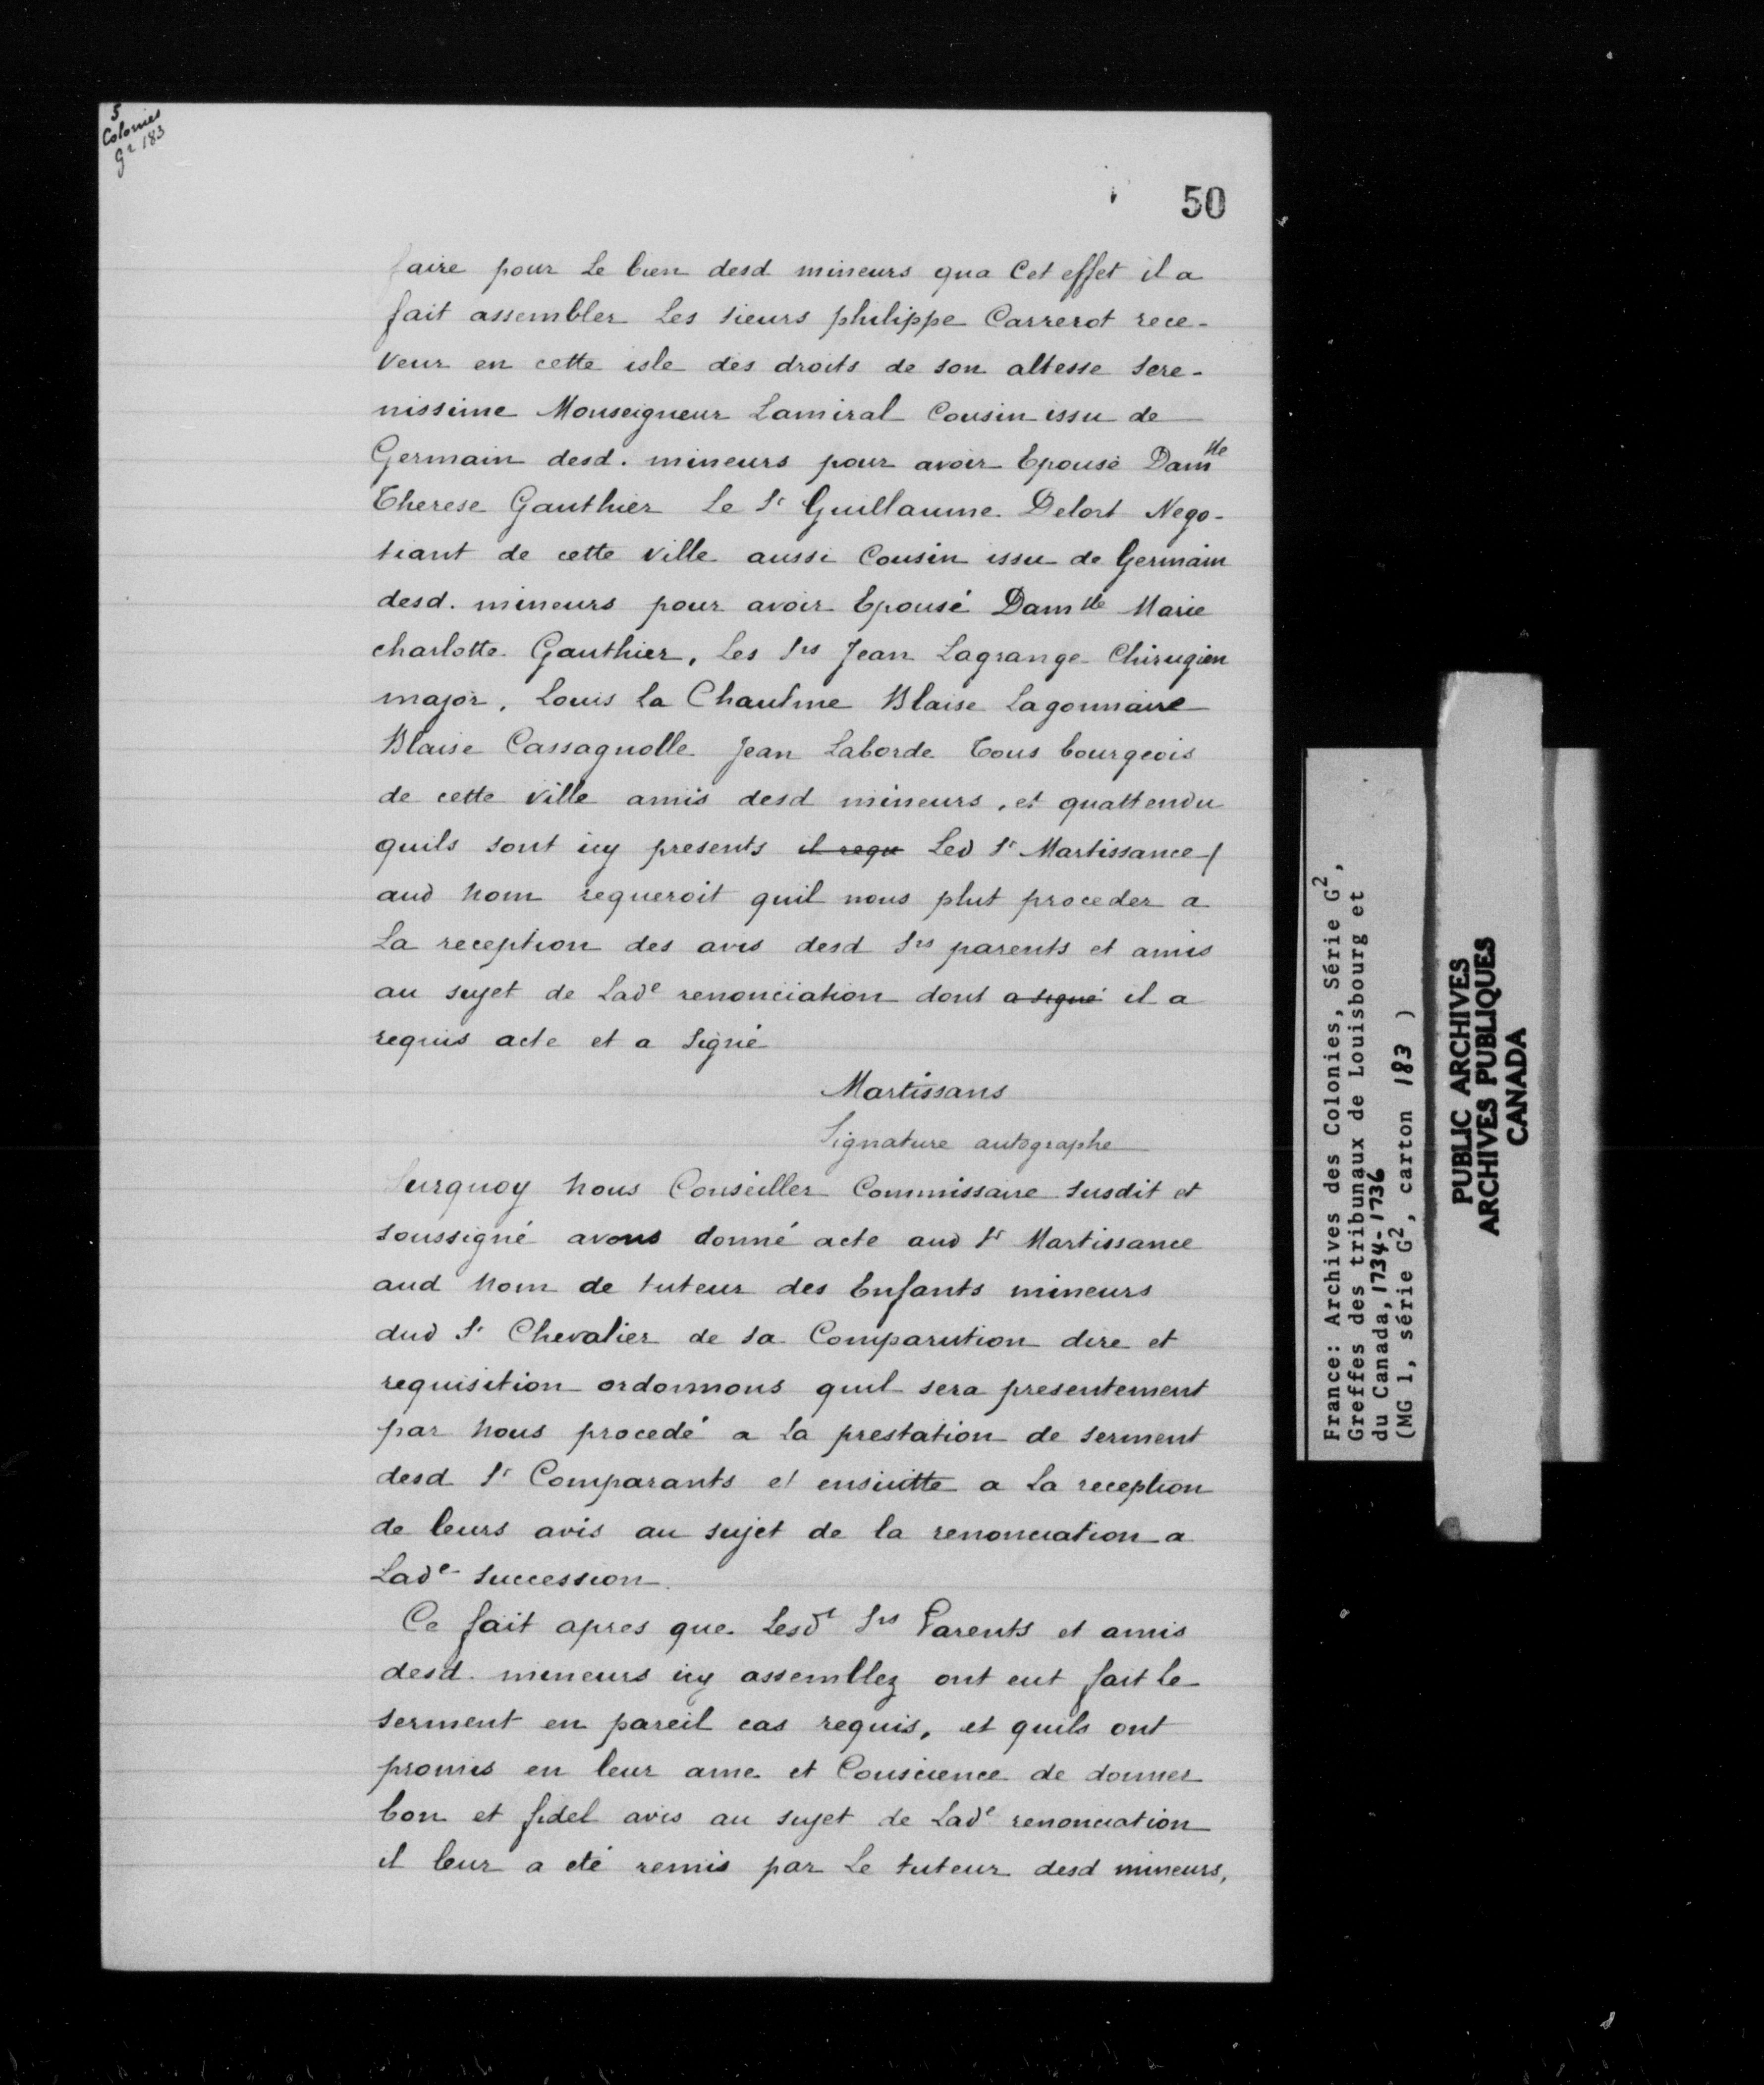 5
Colonies
G² 183
50
faire pour Le bien desd mineurs qua Cet effet il a
fait assembler Les sieurs philippe Carrerot rece-
veur en cette isle des droits de son altesse sere-
nissime Monseigneur Lamiral Cousin issu de
Germain desd. mineurs pour avoir Epousé Damlle
Therese Gauthier Le Sr Guillaume Delort Nego-
tiant de cette ville aussi Cousin issu de Germain
desd. mineurs pour avoir Epousé Damlle Marie
charlotte Gauthier, Les Srs Jean Lagrange Chirugien
major, Louis la Chaulme Blaise Lagonnaire
Blaise Cassagnolle Jean Laborde Tous bourgeois
de cette ville amis desd mineurs, et quattendu
quils sont icy presents il requ Led Sr Martissance
aud nom requeroit quil nous plut proceder a
La reception des avis desd Srs parents et amis
au sujet de Lade renonciation dont a signé il a
requis acte et a Signé
Martissans
Signature autographe
Surquoy nous Conseiller Commissaire susdit et
soussigné avons donné acte aud Sr Martissance
aud nom de tuteur des Enfants mineurs
dud Sr Chevalier de sa Comparution dire et
requisition ordonnons quil sera presentement
par nous procedé a La prestation de serment
desd Sr Comparants et ensuitte a La reception
de leurs avis au sujet de la renonciation a
Lade succession.
Ce fait apres que Lesdt Srs Parents et amis
desd. mineurs icy assemblez ont eut fait le
serment en pareil cas requis, et quils ont
promis en leur ame et Conscience de donner
bon et fidel avis au sujet de Lade renonciation
il leur a eté remis par Le tuteur desd mineurs,
France: Archives des Colonies, Série G²,
Greffes des tribunaux de Louisbourg et
du Canada, 1734-1736
(MG 1, série G², carton 183 )
PUBLIC ARCHIVES
ARCHIVES PUBLIQUES
CANADA